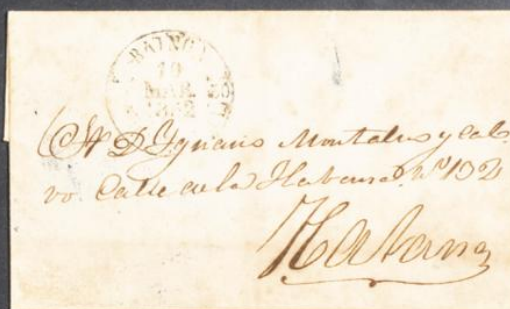 BAINOA
10
MAR.
1852
A D Ygnacio Montalvo y Cal
vo Calle de la Habana Nº 132
Habana